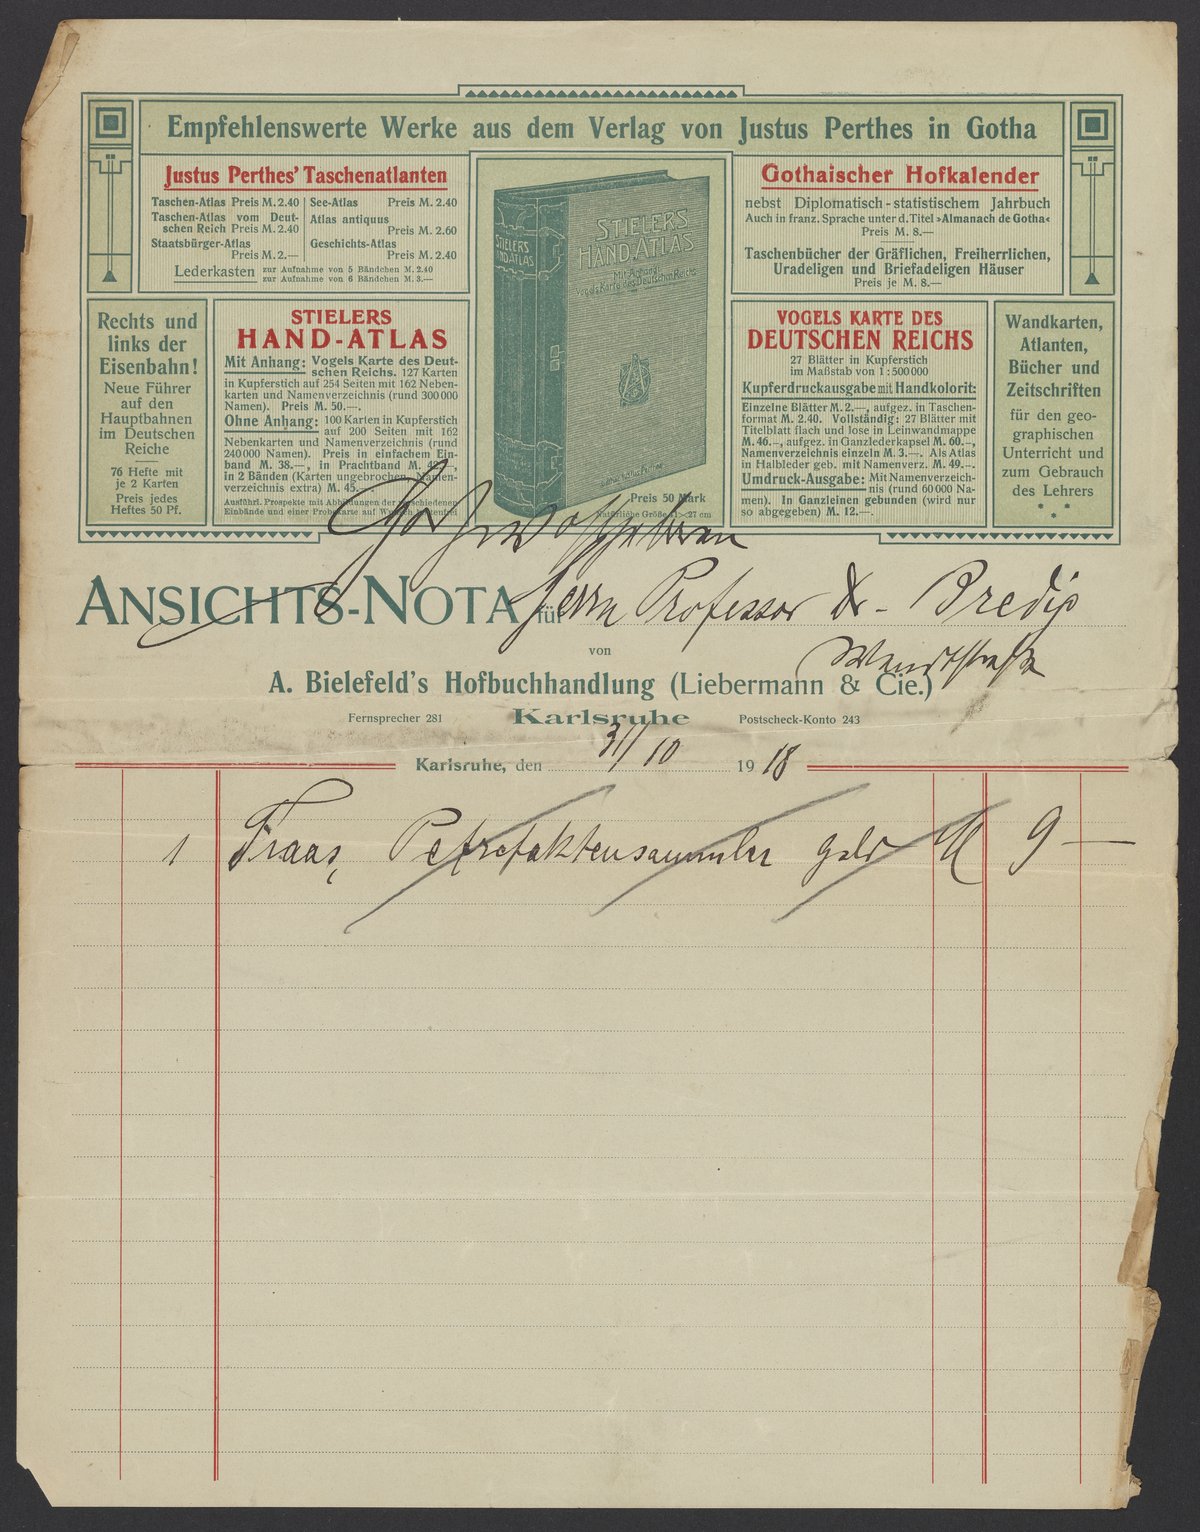 Empfehlenswerte Werke aus dem Verlag von Justus Perthes in Gotha
Justus Perthes' Taschenatlanten
Taschen-Atlas Preis M. 2.40
Taschen-Atlas vom Deut-
schen Reich Preis M. 2.40
Staatsbürger-Atlas
Preis M. 2.—
See-Atlas Preis M. 2.40
Atlas antiquus
Preis M. 2.60
Geschichts-Atlas
Preis M. 2.40
Lederkasten zur Aufnahme von 5 Bändchen M. 2.40
zur Aufnahme von 6 Bändchen M. 3.—
STIELERS
HAND-ATLAS
STIELERS
HAND-ATLAS
Mit Anhang:
Vogels Karte des Deutschen Reichs
Preis 50 Mark
Natürliche Größe 41×27 cm
Gothaischer Hofkalender
nebst Diplomatisch-statistischem Jahrbuch
Auch in franz. Sprache unter d. Titel »Almanach de Gotha«
Preis M. 8.—
Taschenbücher der Gräflichen, Freiherrlichen,
Uradeligen und Briefadeligen Häuser
Preis je M. 8.—
Rechts und
links der
Eisenbahn!
Neue Führer
auf den
Hauptbahnen
im Deutschen
Reiche
76 Hefte mit
je 2 Karten
Preis jedes
Heftes 50 Pf.
STIELERS
HAND-ATLAS
Mit Anhang: Vogels Karte des Deut-
schen Reichs. 127 Karten
in Kupferstich auf 254 Seiten mit 162 Neben-
karten und Namenverzeichnis (rund 300 000
Namen). Preis M. 50.—.
Ohne Anhang: 100 Karten in Kupferstich
auf 200 Seiten mit 162
Nebenkarten und Namenverzeichnis (rund
240 000 Namen). Preis in einfachem Ein-
band M. 38.—, in Prachtband M. 42.—,
in 2 Bänden (Karten ungebrochen, Namen-
verzeichnis extra) M. 45.—
Ausführl. Prospekte mit Abbildungen der verschiedenen
Einbände und einer Probekarte auf Wunsch kostenfrei
VOGELS KARTE DES
DEUTSCHEN REICHS
27 Blätter in Kupferstich
im Maßstab von 1 : 500 000
Kupferdruckausgabe mit Handkolorit:
Einzelne Blätter M. 2.—, aufgez. in Taschen-
format M. 2.40. Vollständig: 27 Blätter mit
Titelblatt flach und lose in Leinwandmappe
M. 46.—, aufgez. in Ganzlederkapsel M. 60.—,
Namenverzeichnis einzeln M. 3.—. Als Atlas
in Halbleder geb. mit Namenverz. M. 49.—.
Umdruck-Ausgabe: Mit Namenverzeich-
nis (rund 60 000 Na-
men). In Ganzleinen gebunden (wird nur
so abgegeben) M. 12.—.
Wandkarten,
Atlanten,
Bücher und
Zeitschriften
für den geo-
graphischen
Unterricht und
zum Gebrauch
des Lehrers
Hochwohlgeboren
ANSICHTS-NOTA für Herrn Professor Dr. Bredig
von Wendtstraße
A. Bielefeld's Hofbuchhandlung (Liebermann & Cie.)
Fernsprecher 281 Karlsruhe Postscheck-Konto 243
Karlsruhe, den 31/10 1918
1 Fraas, Petrefaktensammler gebd M 9 —